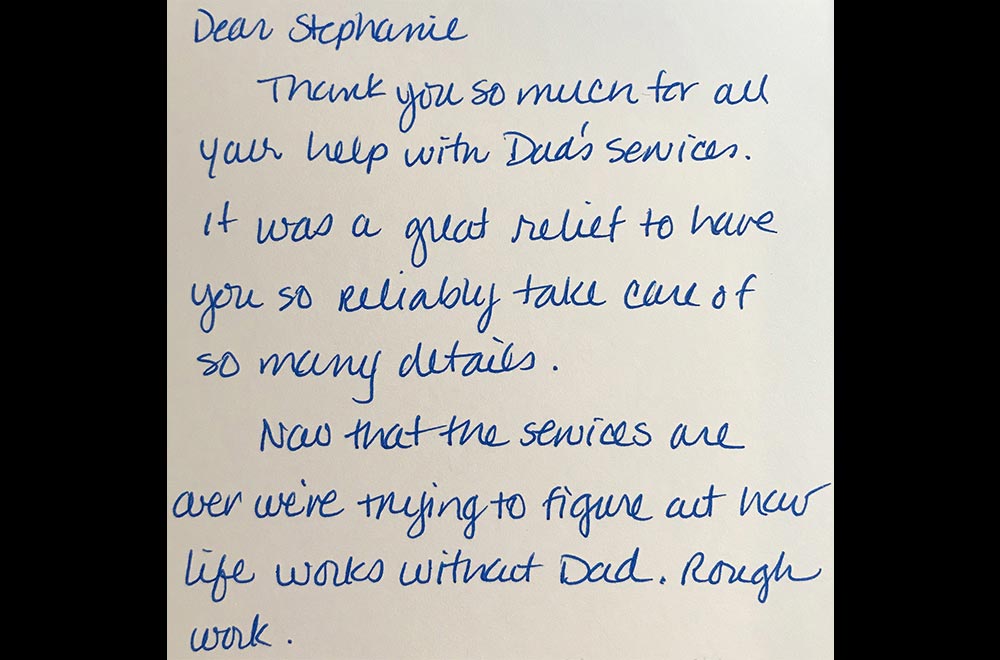 Dear Stephanie
Thank you so much for all
your help with Dad's services.
It was a great relief to have
you so reliably take care of
so many details.
Now that the services are
over we're trying to figure out how
life works without Dad. Rough
work.